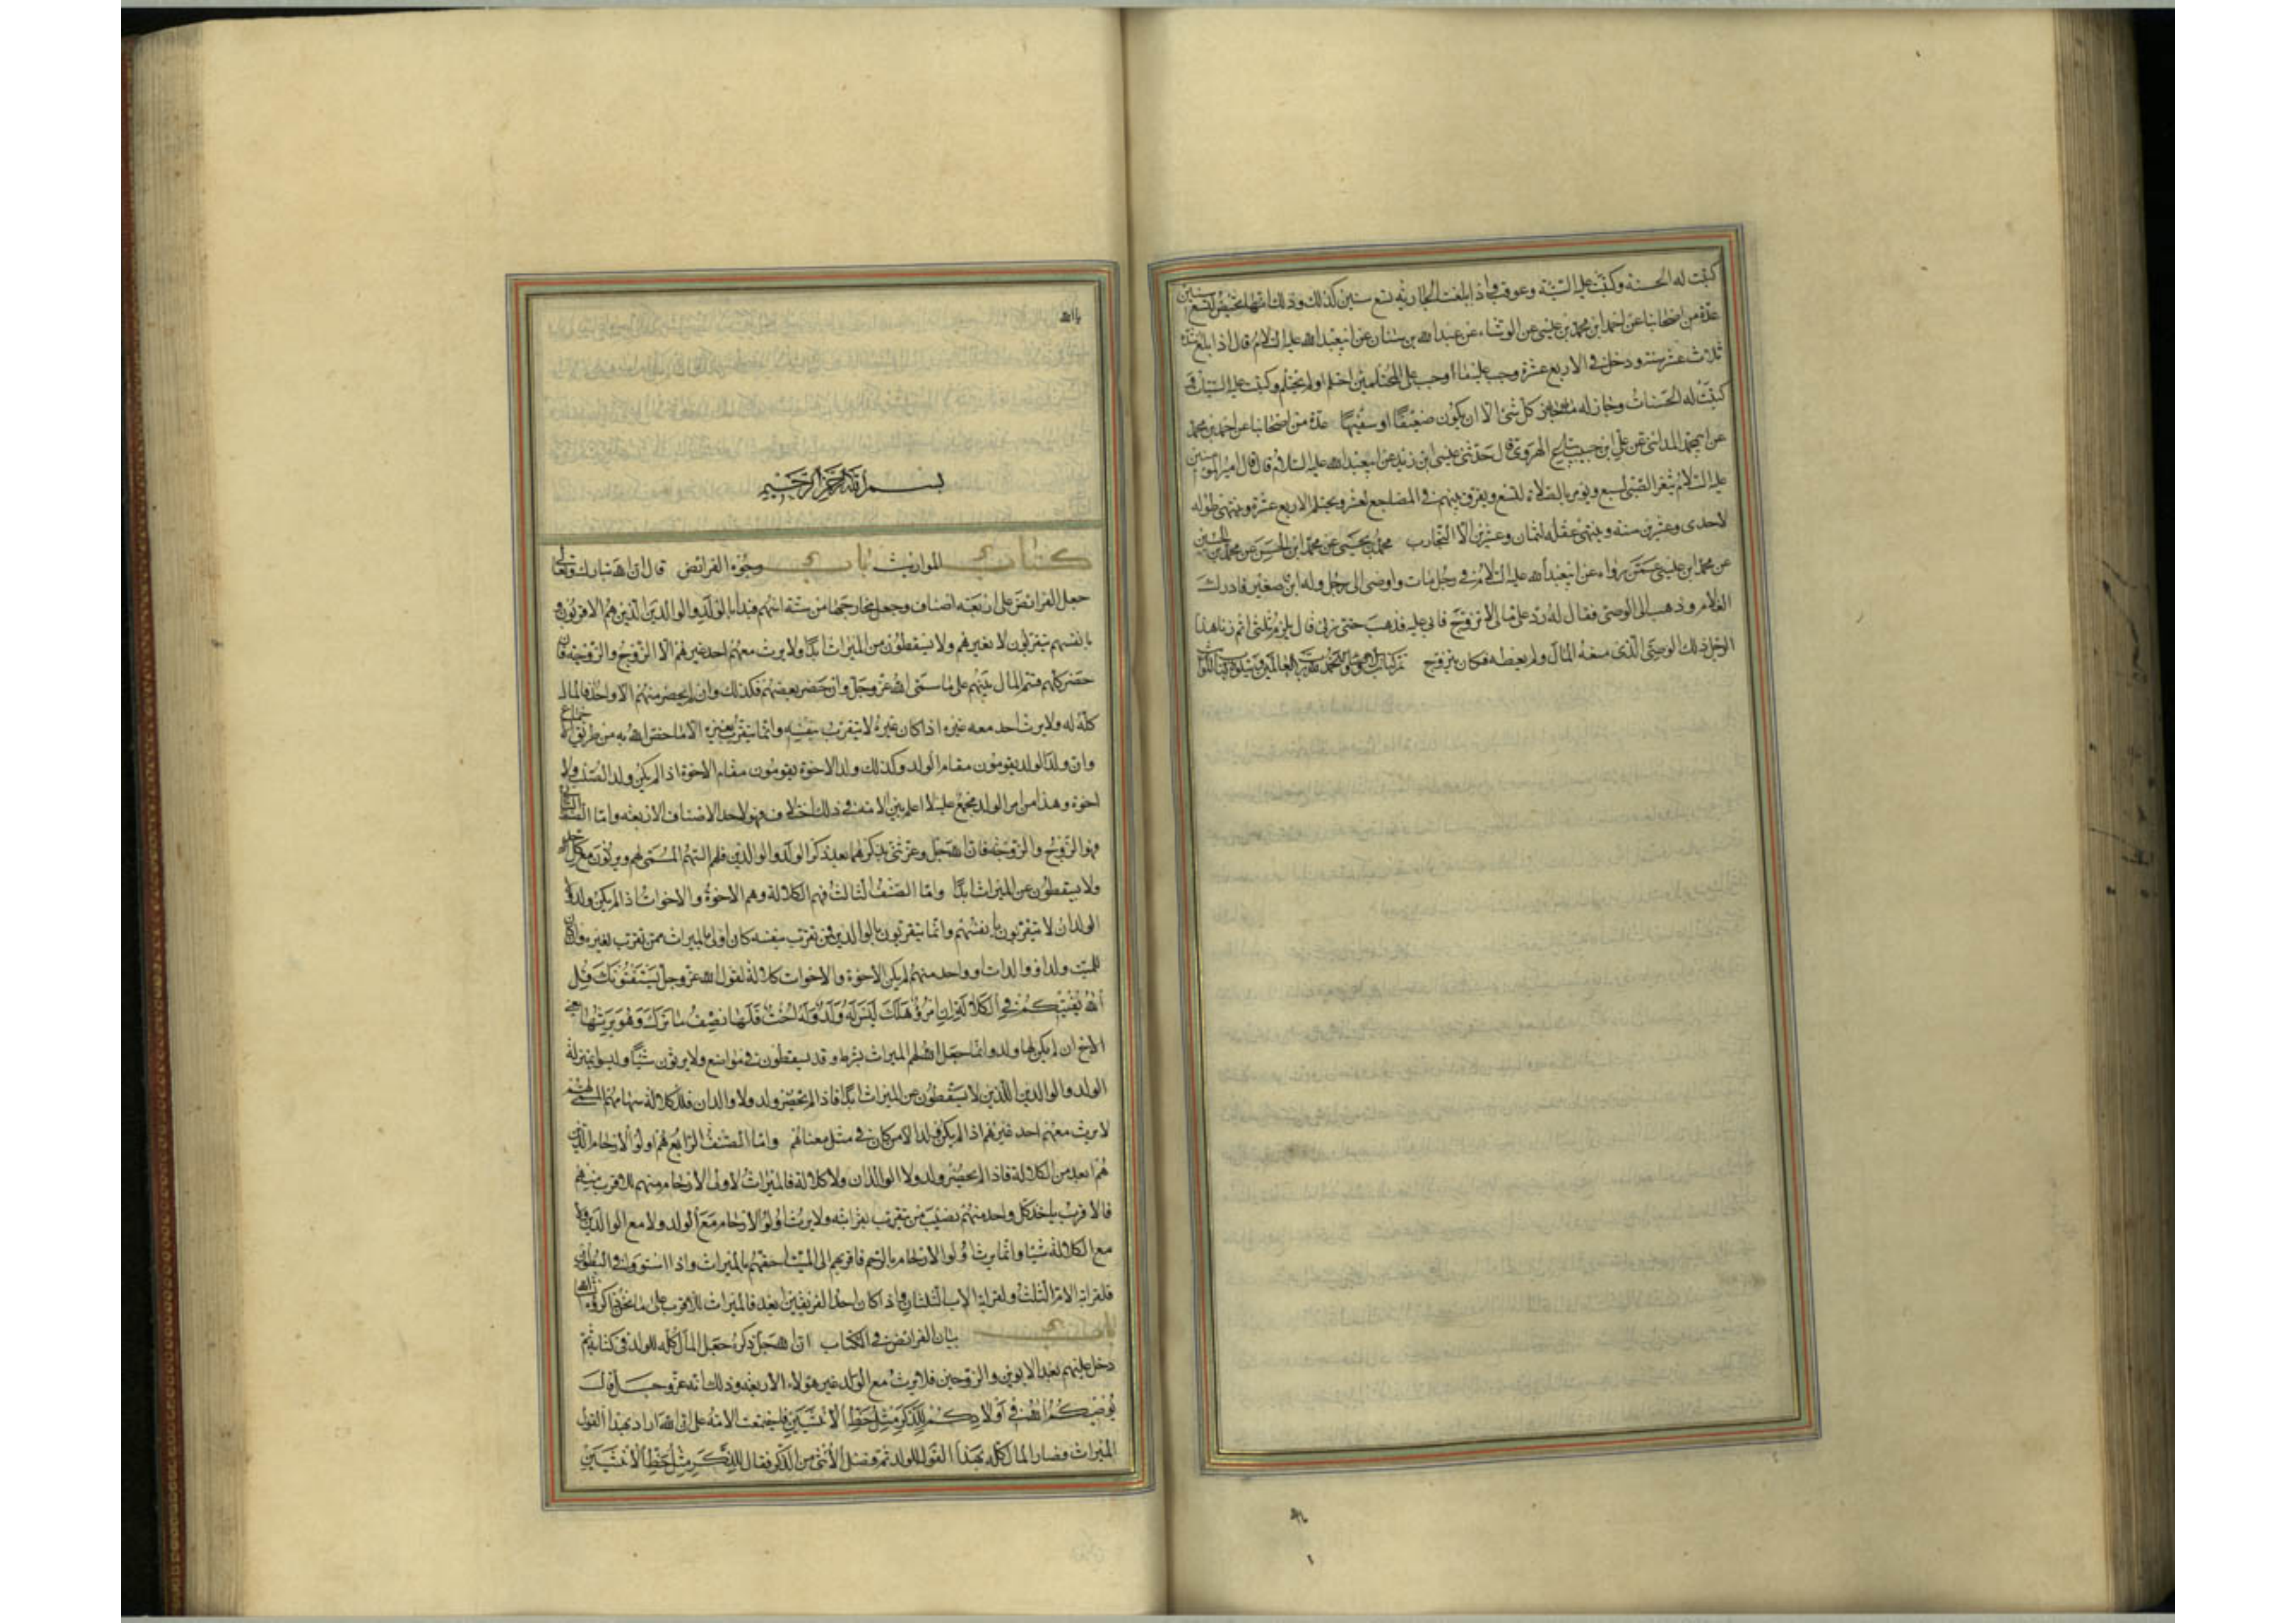 كتبت له الحسنة وكتبت عليه السيئة وعوقب واذا بلغت الجارية تسع سنين كذلك وذلك انها تحيض لتسع سنين
عدّة من اصحابنا عن احمد ابن محمد بن عيسى عن الوشاء عن عبدالله بن سنان عن ابيعبدالله عليه السلام قال اذا بلغ اشده
ثلاث عشر سنة ودخل في الاربع عشرة وجب عليه ما اوجب على المحتلمين احتلم او لم يحتلم وكتبت عليه السيئات و
كتبت له الحسنات وجاز له كل شئ الا ان يكون ضعيفًا او سفيهًا عدة من اصحابنا عن احمد بن محمد
عن ابيمحمد المدائنى عن علي ابن حبيب بياع الهروى قال حدثنى عيسى ابن زيد عن ابيعبدالله عليه السلام قال قال امير المومنين
عليه السلام يثغر الصبى لسبع ويؤمر بالصلاة لتسع ويفرق بينهم في المضاجع لعشر ويحتلم الاربع عشرة وينتهى طوله
لاحدى وعشرين سنه وينتهى عقله لثمان وعشرين الا التجارب محمد بن يحيى عن محمد ابن الحسن عن محمد بن الحسين
عن محمد ابن عيسى عمن رواه عن ابيعبدالله عليه السلام في رجل مات واوصى الى رجل وله ابن صغير فادرك
الغلام وذهب الى الوصى فقال له رد على مالى لاتزوج فابى عليه فذهب حتى زنى قال يلزم ثلثى اثم زنا هذا
الرجل ذلك الوصى الذى منعه المال ولم يعطه فكان يتزوج تم كتاب الوصايا والحمد لله رب العالمين ويتلوه كتاب المواريث
باالله
بسم الله الرحمن الرحيم
كتاب المواريث باب وجوه الفرائض قال ان الله تبارك وتعالى
جعل الفرائض على اربعة اصناف وجعل مخارجها من ستة اسهم فبدأ بالولد والوالدين الذين هم الاقربون و
بانفسهم يتقربون لا بغيرهم ولا يسقطون من الميراث ابدًا ولا يرث معهم احد غيرهم الا الزوج والزوجة فان
حضر كلهم قسم المال بينهم على ما سمى الله عز وجل وان حضر بعضهم فكذلك وان لم يحضر منهم الا واحد فالمال
كله له ولا يرث احد معه غيره اذا كان غيره لا يتقرب بنفسه وانما يتقرب بغيره الا ما خص الله به من طريق الاجماع
وان ولد الولد يقومون مقام الولد وكذلك ولد الاخوة يقومون مقام الاخوة اذا لم يكن ولد الصلب ولا
اخوة وهذا من امر الولد مجمع عليه لا اعلم بين الامة في ذلك اختلاف فهولاء احد الاصناف الاربعة واما الصنف الثانى
فهو الزوج والزوجة فان الله جل وعز ثنى بذكرهما بعد ذكر الولد والوالدين فلهم السهم المسمى لهم ويرثون مع كل احد
ولا يسقطون عن الميراث ابدًا واما الصنف الثالث فهم الكلالة وهم الاخوة والاخوات اذا لم يكن ولد ولا
الوالدان لا يتقربون بانفسهم وانما يتقربون بالوالدين فمن تقرب بنفسه كان اولى بالميراث ممن تقرب بغيره وان كان
للميت ولد او والدان او واحد منهم لم يكن الاخوة والاخوات كلالة لقول الله عز وجل يستفتونك قل
الله يفتيكم في الكلالة ان امرؤ هلك ليس له ولد وله اخت فلها نصف ما ترك وهو يرثها يعنى
الاخ ان لم يكن لها ولد وانما جعل الله لهم الميراث بشرط وقد يسقطون في مواضع ولا يرثون شيئًا وليسوا بمنزلة
الولد والوالدين اللذين لا يسقطون عن الميراث ابدًا فاذا لم يحضر ولد ولا والدان فللكلالة سهامهم المسماة لهم
لا يرث معهم احد غيرهم اذا لم يكن ولد الا من كان في مثل معناهم واما الصنف الرابع هم اولو الارحام الذين
هم ابعد من الكلالة فاذا لم يحضر ولد ولا الوالدان ولا كلالة فالميراث لاولى الارحام منهم للاقرب منهم
فالاقرب ياخذ كل واحد منهم نصيب من يتقرب بقرابته ولا يرث اولو الارحام مع الولد ولا مع الوالدين ولا
مع الكلالة شيئا وانما يرث اولوا الارحام بالرحم فاقربهم الى الميت احقهم بالميراث واذا استووا في البطون
فلقرابة الام الثلث ولقرابة الاب الثلثان واذا كان احد الفريقين ابعد فالميراث للاقرب على ما نحن ذاكروه ان شاء الله
باب بيان الفرائض في الكتاب ان الله جل ذكره جعل المال كله للولد في كتابه ثم
دخل عليهم بعد الابوين والزوجين فلا يرث مع الولد غير هولاء الاربعة وذلك انه عز وجل قال
يوصيكم الله في اولادكم للذكر مثل حظ الانثيين فاجتمعت الامة على ان الله اراد بهذا القول
الميراث فصار المال كله بهذا القول للولد ثم فصل الانثى من الذكر فقال للذكر مثل حظ الانثيين